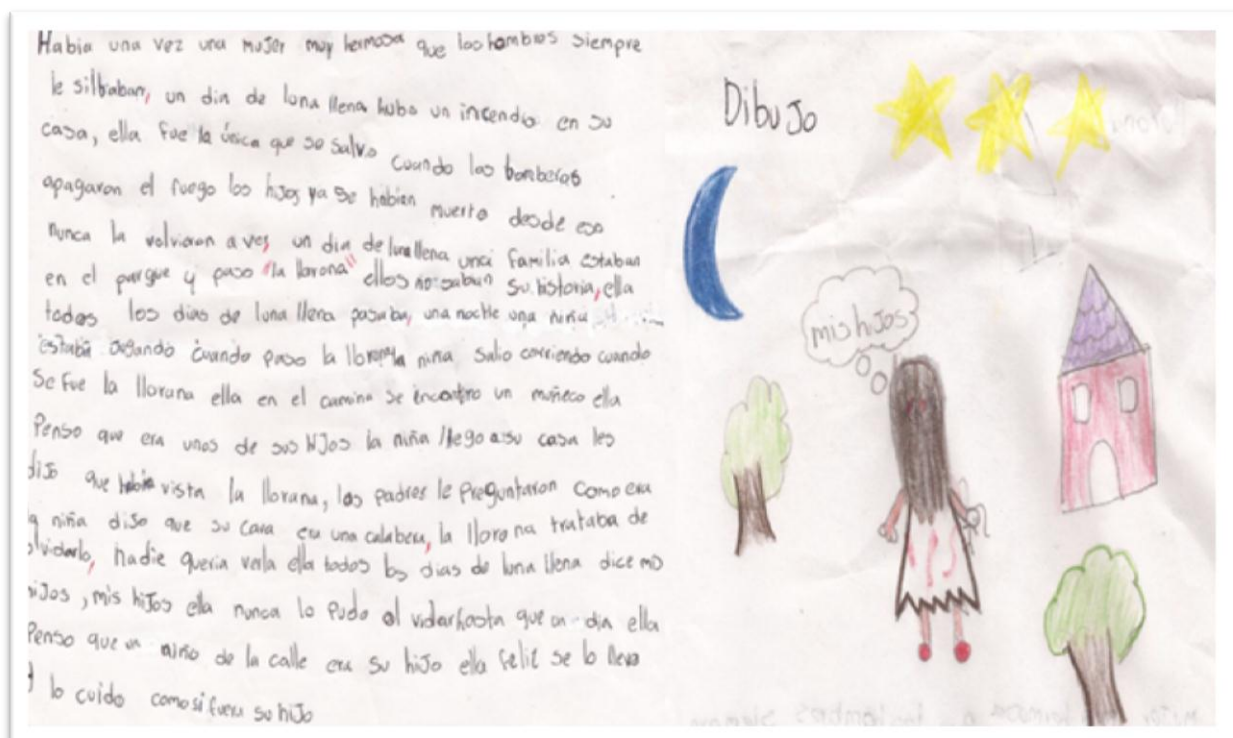 Habia una vez una mujer muy hermosa que los hombres siempre
le silbaban, un dia de luna llena hubo un incendio en su
casa, ella fue la única que se salvo cuando los bomberos
apagaron el fuego los hijos ya se habian muerto desde eso
nunca la volvieron a ver, un dia de luna llena una familia estaban
en el parque y paso "la llorona" ellos no sabian su historia, ella
todos los dias de luna llena pasaba, una noche una niña
estaba jugando cuando paso la llorona la niña salio corriendo cuando
se fue la llorona ella en el camino se encontro un muñeco ella
Penso que era unos de sus hijos la niña llego a su casa les
dijo que habia vista la llorona, los padres le preguntaron como era
la niña dijo que su cara era una calabera, la llorona trataba de
olvidarlo, nadie queria verla ella todos los dias de luna llena dice mis
hijos, mis hijos ella nunca lo pudo olvidar hasta que un dia ella
Penso que un niño de la calle era su hijo ella feliz se lo llevo
y lo cuido como si fuera su hijo
Dibujo
mis hijos